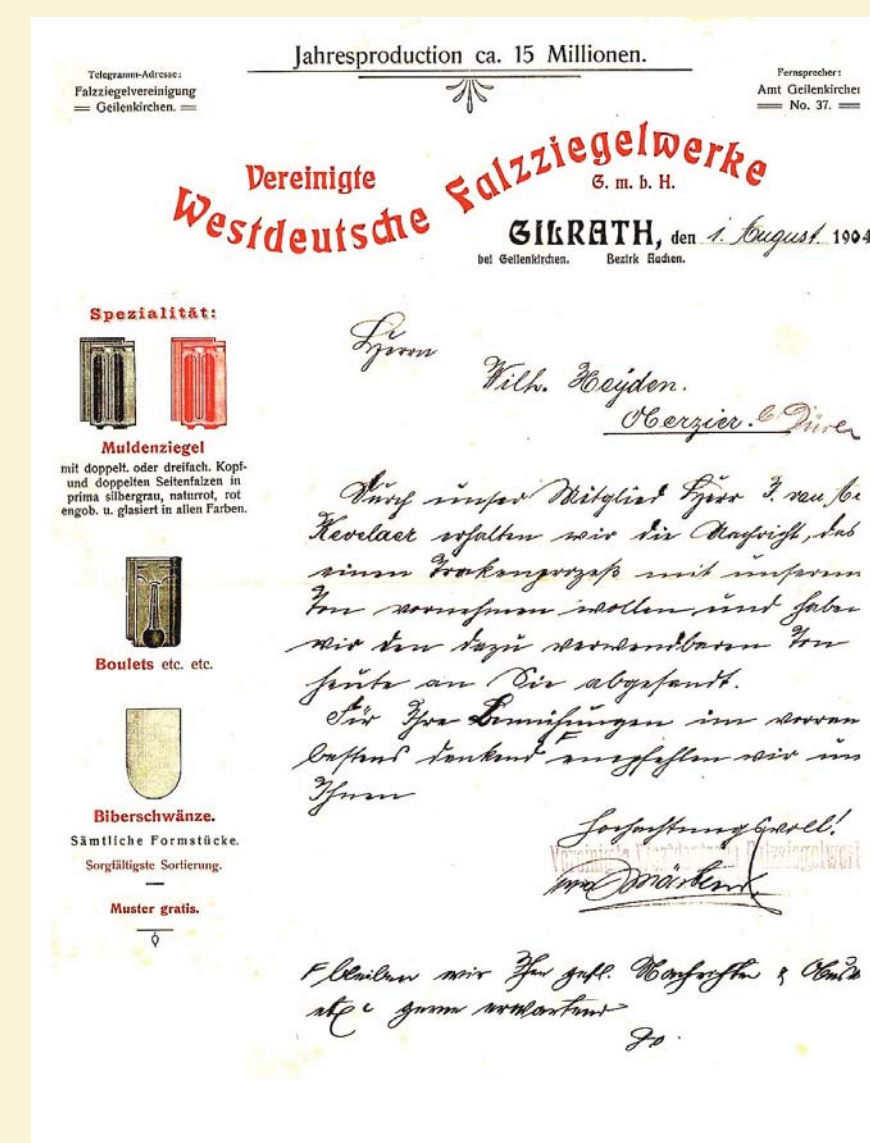 Jahresproduction ca. 15 Millionen.
Telegramm-Adresse:
Falzziegelvereinigung
Geilenkirchen.
Fernsprecher:
Amt Geilenkirchen
No. 37.
Vereinigte
Westdeutsche Falzziegelwerke
G. m. b. H.
GILRATH, den 1. August 1904
bei Geilenkirchen. Bezirk Aachen.
Spezialität:
Muldenziegel
mit doppelt. oder dreifach. Kopf-
und doppelten Seitenfalzen in
prima silbergrau, naturrot, rot
engob. u. glasiert in allen Farben.
Boulets etc. etc.
Biberschwänze.
Sämtliche Formstücke.
Sorgfältigste Sortierung.
Muster gratis.
Herrn
Wilh. Heyden.
Oberzier. b. Düren
Durch unser Mitglied Herr J. van
Kevelaer erhalten wir die Nachricht, das
einen Trokenprozeß mit unserem
Ton vornehmen wollen und haben
wir den dazu verwendbaren Ton
heute an Sie abgesandt.
Für Ihre Bemühungen im vorran
bestens dankend F empfehlen wir un
Ihnen
Hochachtungsvoll!
Vereinigte Westdeutsche Falzziegelwerk
F bleiben wir Ihre gefl. Nachrichten &
etc gerne erwartend